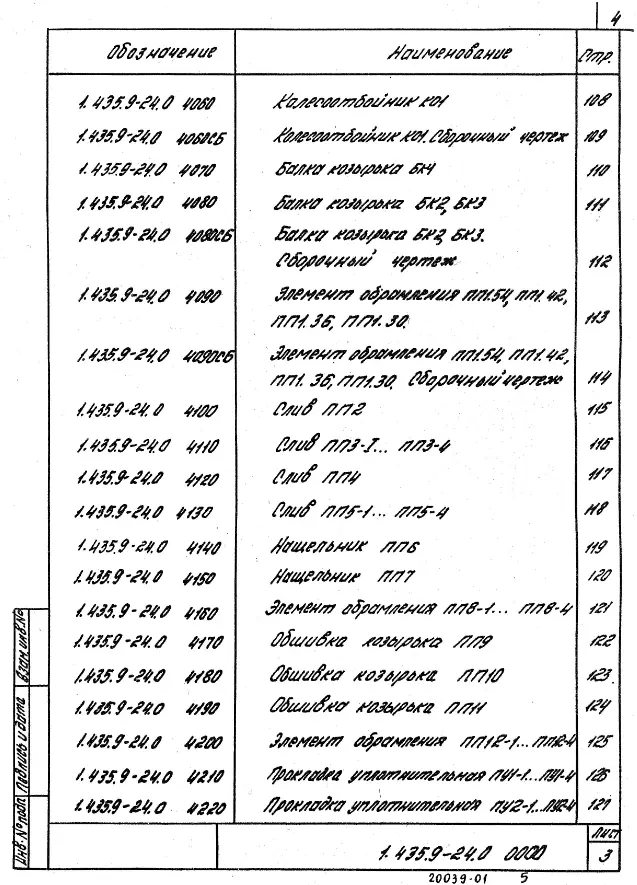 4
Обозначение Наименование Стр.
1.435.9-24.0 4060 Колесоотбойник КО1 108
1.435.9-24.0 4060СБ Колесоотбойник КО1. Сборочный чертеж 109
1.435.9-24.0 4070 Балка козырька БК1 110
1.435.9-24.0 4080 Балка козырька БК2, БК3 111
1.435.9-24.0 4080СБ Балка козырька БК2, БК3.
Сборочный чертеж 112
1.435.9-24.0 4090 Элемент обрамления ПП1.54, ПП1.42,
ПП1.36, ПП1.30. 113
1.435.9-24.0 4090СБ Элемент обрамления ПП1.54, ПП1.42,
ПП1.36, ПП1.30. Сборочный чертеж 114
1.435.9-24.0 4100 Слив ПП2 115
1.435.9-24.0 4110 Слив ПП3-1... ПП3-4 116
1.435.9-24.0 4120 Слив ПП4 117
1.435.9-24.0 4130 Слив ПП5-1... ПП5-4 118
1.435.9-24.0 4140 Нащельник ПП6 119
1.435.9-24.0 4150 Нащельник ПП7 120
1.435.9-24.0 4160 Элемент обрамления ПП8-1... ПП8-4 121
1.435.9-24.0 4170 Обшивка козырька ПП9 122
1.435.9-24.0 4180 Обшивка козырька ПП10 123
1.435.9-24.0 4190 Обшивка козырька ПП11 124
1.435.9-24.0 4200 Элемент обрамления ПП12-1... ПП12-4 125
1.435.9-24.0 4210 Прокладка уплотнительная ПУ1-1... ПУ1-4 126
1.435.9-24.0 4220 Прокладка уплотнительная ПУ2-1... ПУ2-4 127
Взам инв.№
Подпись и дата
Инв.№ подл.
1.435.9-24.0 0000
Лист
3
20039-01 5